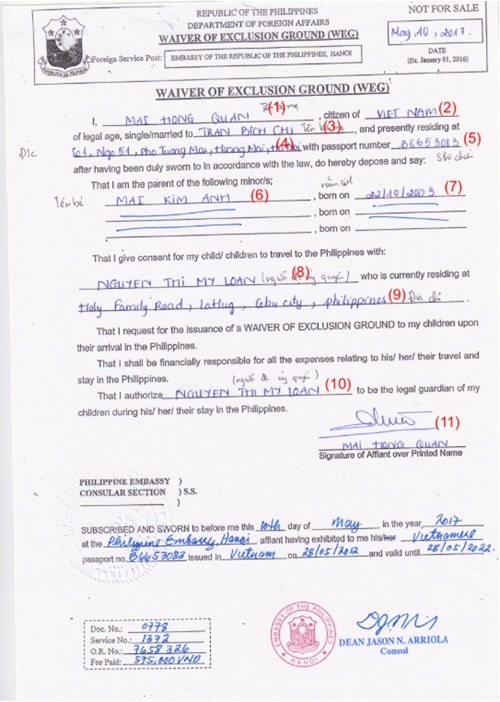 REPUBLIC OF THE PHILIPPINES
DEPARTMENT OF FOREIGN AFFAIRS
WAIVER OF EXCLUSION GROUND (WEG)
NOT FOR SALE
May 10, 2017.
Foreign Service Post: EMBASSY OF THE REPUBLIC OF THE PHILIPPINES, HANOI
DATE
(Ex. January 01, 2016)
WAIVER OF EXCLUSION GROUND (WEG)
I, MAI HONG QUAN (1), citizen of VIET NAM (2)
of legal age, single/married to TRAN BICH CHI (3), and presently residing at
Đ/c So1, Ngo 51, Pho Tuong Mai, Hoang Mai, (4) with passport number B6653083 (5)
after having been duly sworn to in accordance with the law, do hereby depose and say: Số hộ chiếu
That I am the parent of the following minor/s;
Tên bé MAI KIM ANH (6), born on 22/10/2003 (7)
, born on
, born on
That I give consent for my child/ children to travel to the Philippines with:
NGUYEN THI MY LOAN (người quyền) (8) who is currently residing at
Holy Family Road, Lathug, Cebu city, philippines (9) Địa chỉ
That I request for the issuance of a WAIVER OF EXCLUSION GROUND to my children upon
their arrival in the Philippines.
That I shall be financially responsible for all the expenses relating to his/ her/ their travel and
stay in the Philippines.
(người ủy quyền)
That I authorize NGUYEN THI MY LOAN (10) to be the legal guardian of my
children during his/ her/ their stay in the Philippines.
(11)
MAI HONG QUAN
Signature of Affiant over Printed Name
PHILIPPINE EMBASSY )
CONSULAR SECTION ) S.S.
)
SUBSCRIBED AND SWORN to before me this 10th day of May in the year, 2017
at the Philippine Embassy, Hanoi affiant having exhibited to me his/her Vietnamese
passport no. B6653083 issued in Vietnam on 28/05/2012 and valid until 28/05/2022.
Doc. No.: 0778
Service No.: 1372
O.R. No.: 7658326
Fee Paid: 595,000 VND
EMBASSY OF THE PHILIPPINES
HANOI
DEAN JASON N. ARRIOLA
Consul